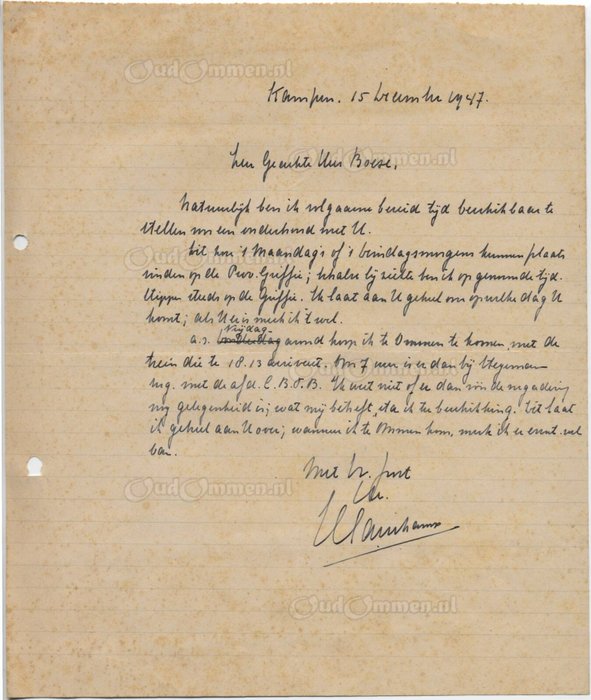 OudOmmen.nl
Kampen. 15 December 1947.
OudOmmen.nl
Zeer Geachte Heer Boese,
Natuurlijk ben ik volgaarne bereid tijd beschikbaar te
stellen voor een onderhoud met U.
Dit kan 's Maandags of 's Dinsdagsmorgens kunnen plaats
vinden op de Prov. Griffie; behalve bij ziekte ben ik op genoemde tijd.
stippen steeds op de Griffie. Ik laat aan U geheel over op welke dag U
komt; als U er is merk ik 't wel.
Vrijdag
a.s. avond hoop ik te Ommen te komen, met de
trein die te 18.13 arriveert. Om 7 uur is er dan bij Stegeman
verg. met de afd. C.B.T.B. Ik weet niet of er dan vóór de vergadering
nog gelegenheid is; wat mij betreft, sta ik ter beschikking. Dit laat
ik geheel aan U over; wanneer ik te Ommen kom, merk ik er wel
van.
OudOmmen.nl
Met br. groet
OudOmmen.nl
OudOmmen.nl